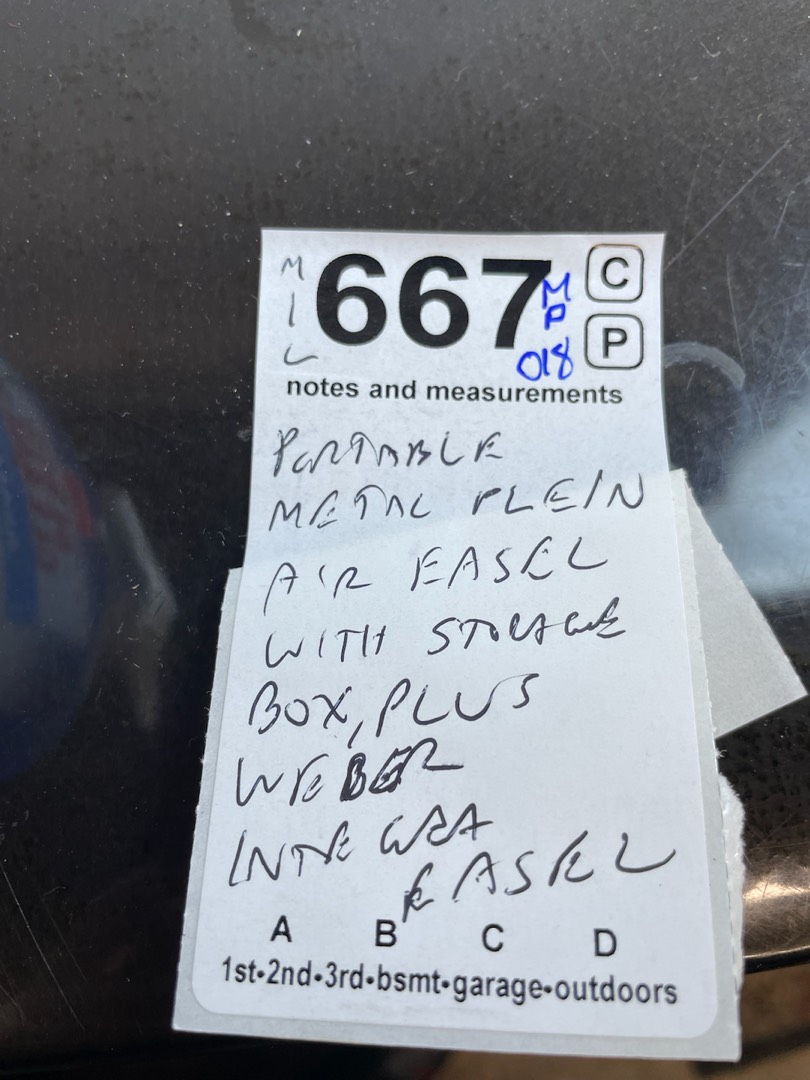 MIL 667 MP 018 C P
notes and measurements
PORTABLE
METAL PLEIN
AIR EASEL
WITH STORAGE
BOX, PLUS
WEBER
INTEGRA
EASEL
A B C D
1st•2nd•3rd•bsmt•garage•outdoors